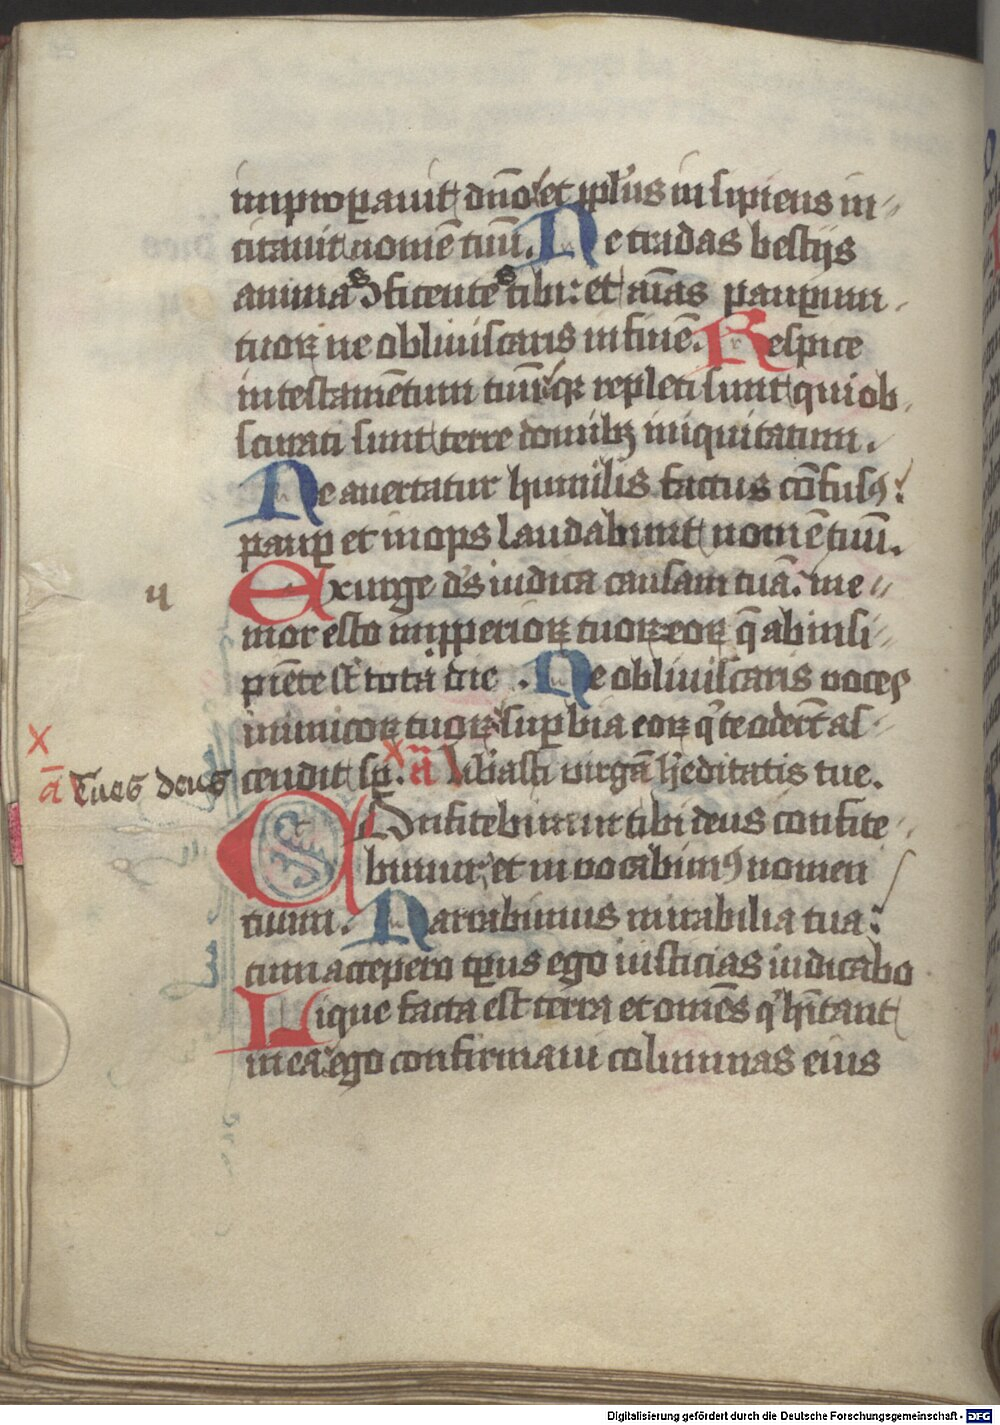 imꝓꝑauit dn̄o et ppl'us insipiens in⸗
citauit nomē tuū. Ne tradas bestijs
animaˢ ↄfitenteˢ tibi: et aīas pauꝑum
tuoꝝ ne obliuiscaris in finē. Respice
in testamētum tuū qꝛ repleti sunt qui ob
scurati sunt terre domibꝫ iniquitatum.
Ne auertatur humilis factus cōfusꝰ:
pauꝑ et inops laudabunt nomē tuū.
Exurge ds̄ iudica causam tuā. me⸗
mor esto imꝓperioꝝ tuoꝝ eoꝝ q̄ ab insi⸗
piēte st̄ tota die. Ne obliuiscaris voces
inimicoꝝ tuoꝝ suꝑbia eoꝝ q' te oderūt as⸗
cendit sꝑ. x ā libasti virgā h'editatis tue.
x
ā Tues deus
Confitebimur tibi deus confite⸗
bimur et in vocabimꝰ nomen
tuum. Narrabimus mirabilia tua:
cum accepero tp̄us ego iusticias iudicabo
Lique facta est terra et omēs q' hītant
in ea: ego confirmaui columnas eius
Digitalisierung gefördert durch die Deutsche Forschungsgemeinschaft - DFG